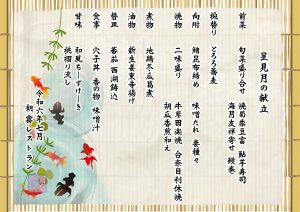 星見月の献立
前菜 旬菜盛り合せ 焼茄子豆冨 鮎笹寿司
海月友禅寄せ 鰻巻
椀替り とろろ蕎麦
向附 鱧昆布締め 味噌だれ 妻種々
焼物 二味盛り 牛草田楽焼 合奈日利休焼
胡瓜香煎和え
煮物 地鶏冬瓜葛煮
油物 新生姜東寺揚げ
替皿 蕃茄西湖鋳込
食事 穴子丼 香の物 味噌汁
甘味 和風ちーずけーき
桃摺り流し
令和六年七月
朝霧レストラン